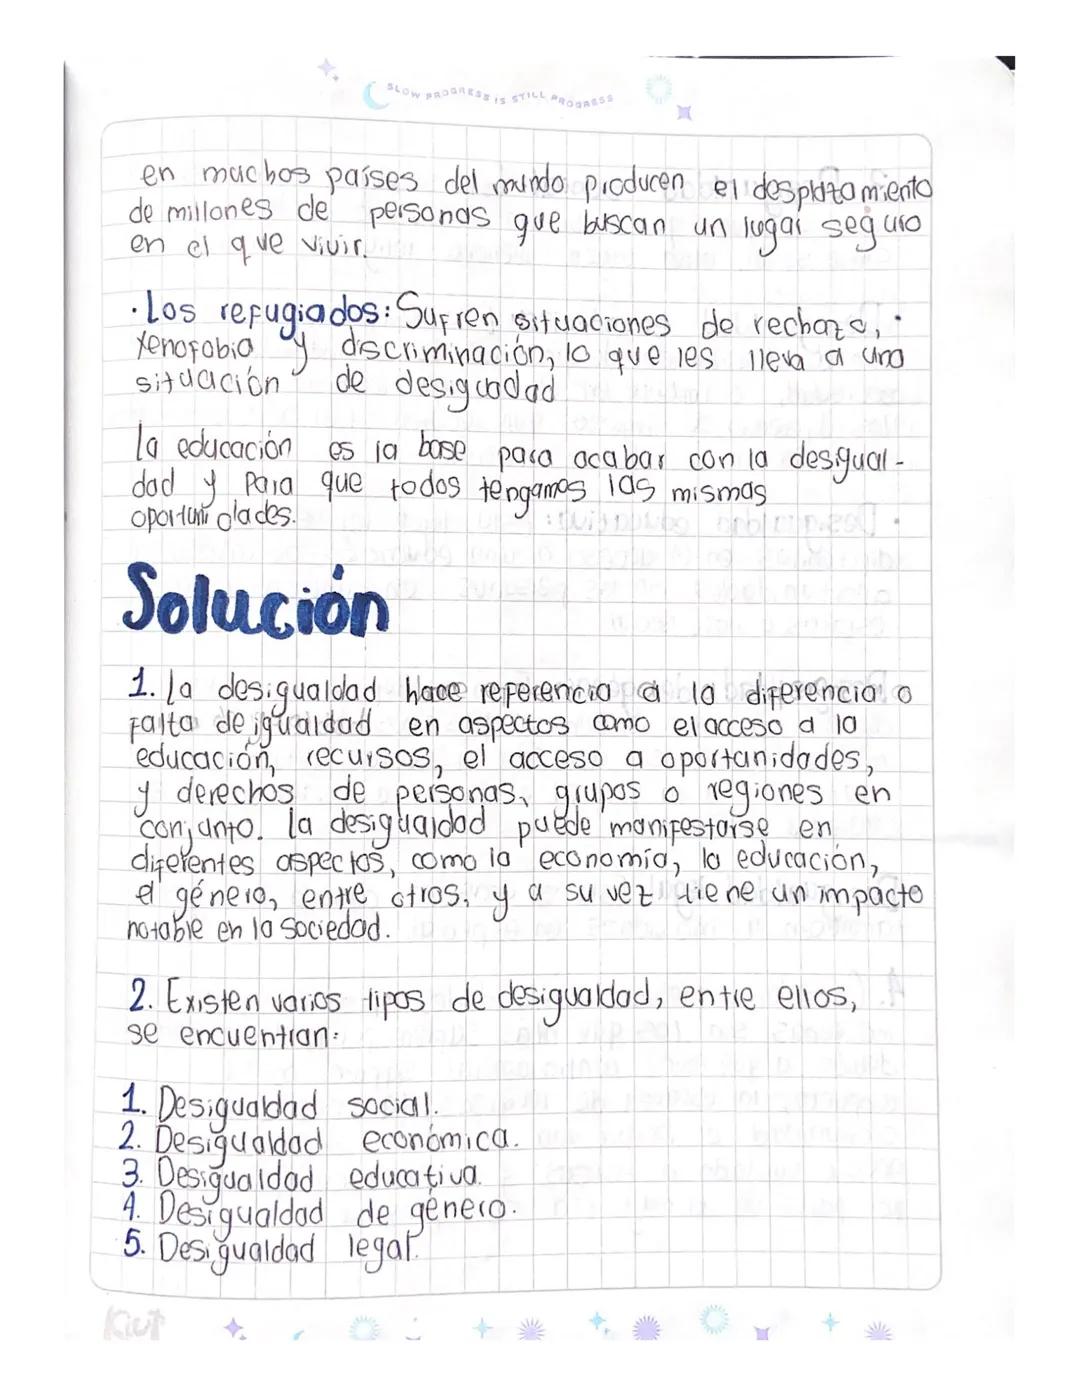 SLOW PROGRESS IS STILL PROGRESS
en muchos países del mundo producen el desplatamiento
de millones de personas que buscan un lugar seguro
en el que vivir.
· Los refugiados: Sufren situaciones de rechazo,
xenofobia y discriminación, lo que les lleva a una
situación de desigualdad
La educación es la base para acabar con la desigual-
dad y para que todos tengamos las mismas
oportunidades.
Solución
1. La desigualdad hace referencia a la diferencia o
falta de igualdad en aspectos como el acceso a la
educación, recursos, el acceso a oportunidades,
y derechos de personas, grupos o regiones en
conjunto. La desigualdad puede manifestarse en
diferentes aspectos, como la economía, la educación,
el género, entre otros, y a su vez tiene un impacto
notable en la sociedad.
2. Existen varios tipos de desigualdad, entre ellos,
se encuentran:
1. Desigualdad social.
2. Desigualdad económica.
3. Desigualdad educativa.
4. Desigualdad de género.
5. Desigualdad legal.
Kiut